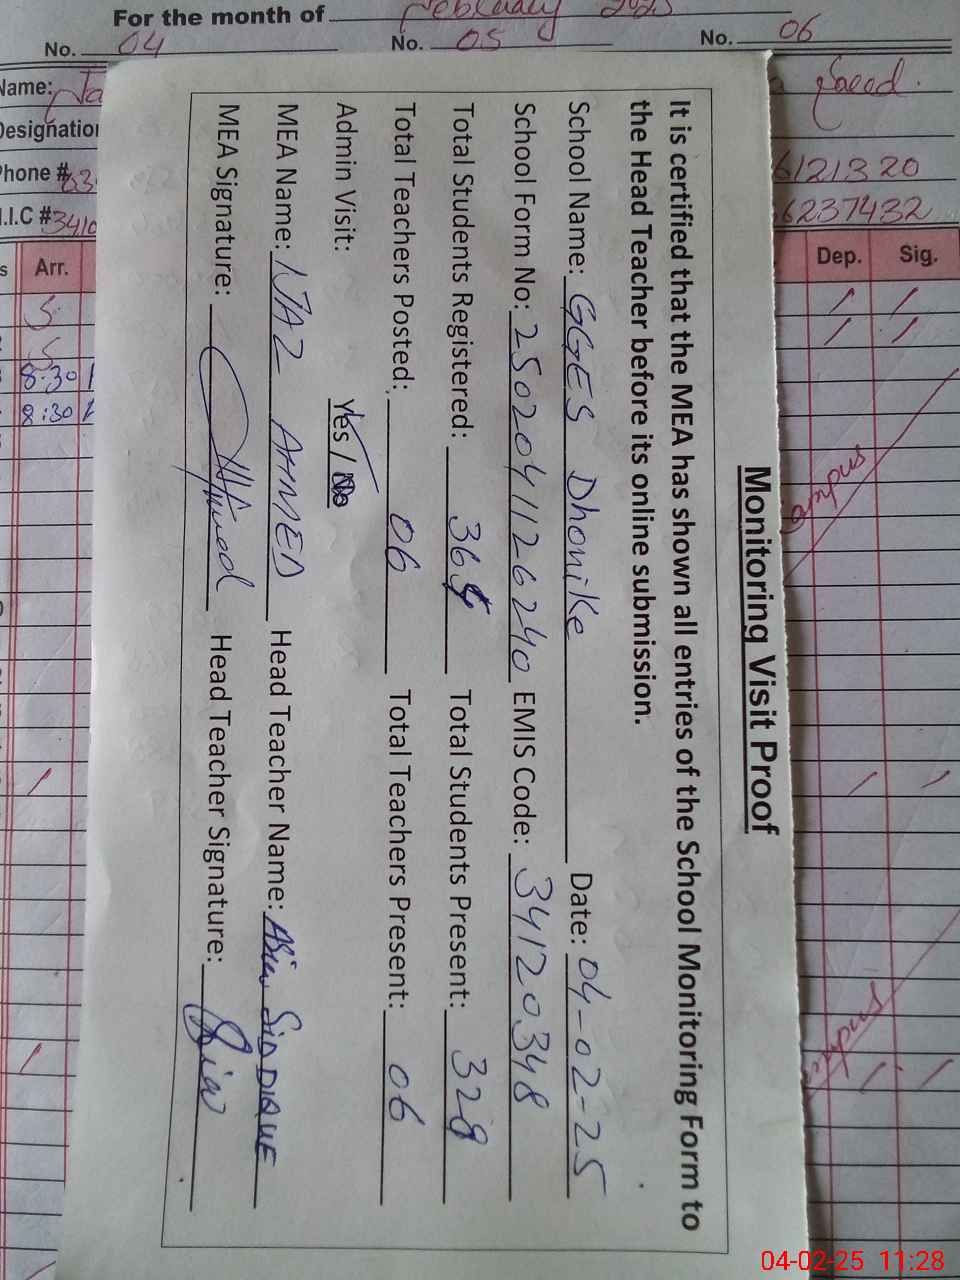 For the month of February
No. 04 No. 05 No. 06
Name: Saeed.
Designation
Phone # 6121320
6237432
Arr. Dep. Sig.
8:30
8:30
Monitoring Visit Proof
It is certified that the MEA has shown all entries of the School Monitoring Form to
the Head Teacher before its online submission.
School Name: GGES Dhonike Date: 04-02-25
School Form No: 2502041126240 EMIS Code: 34120348
Total Students Registered: 364 Total Students Present: 328
Total Teachers Posted: 06 Total Teachers Present: 06
Admin Visit: Yes / No
MEA Name: IJAZ AHMED Head Teacher Name: SIDDIQUE
MEA Signature: Head Teacher Signature:
04-02-25 11:28